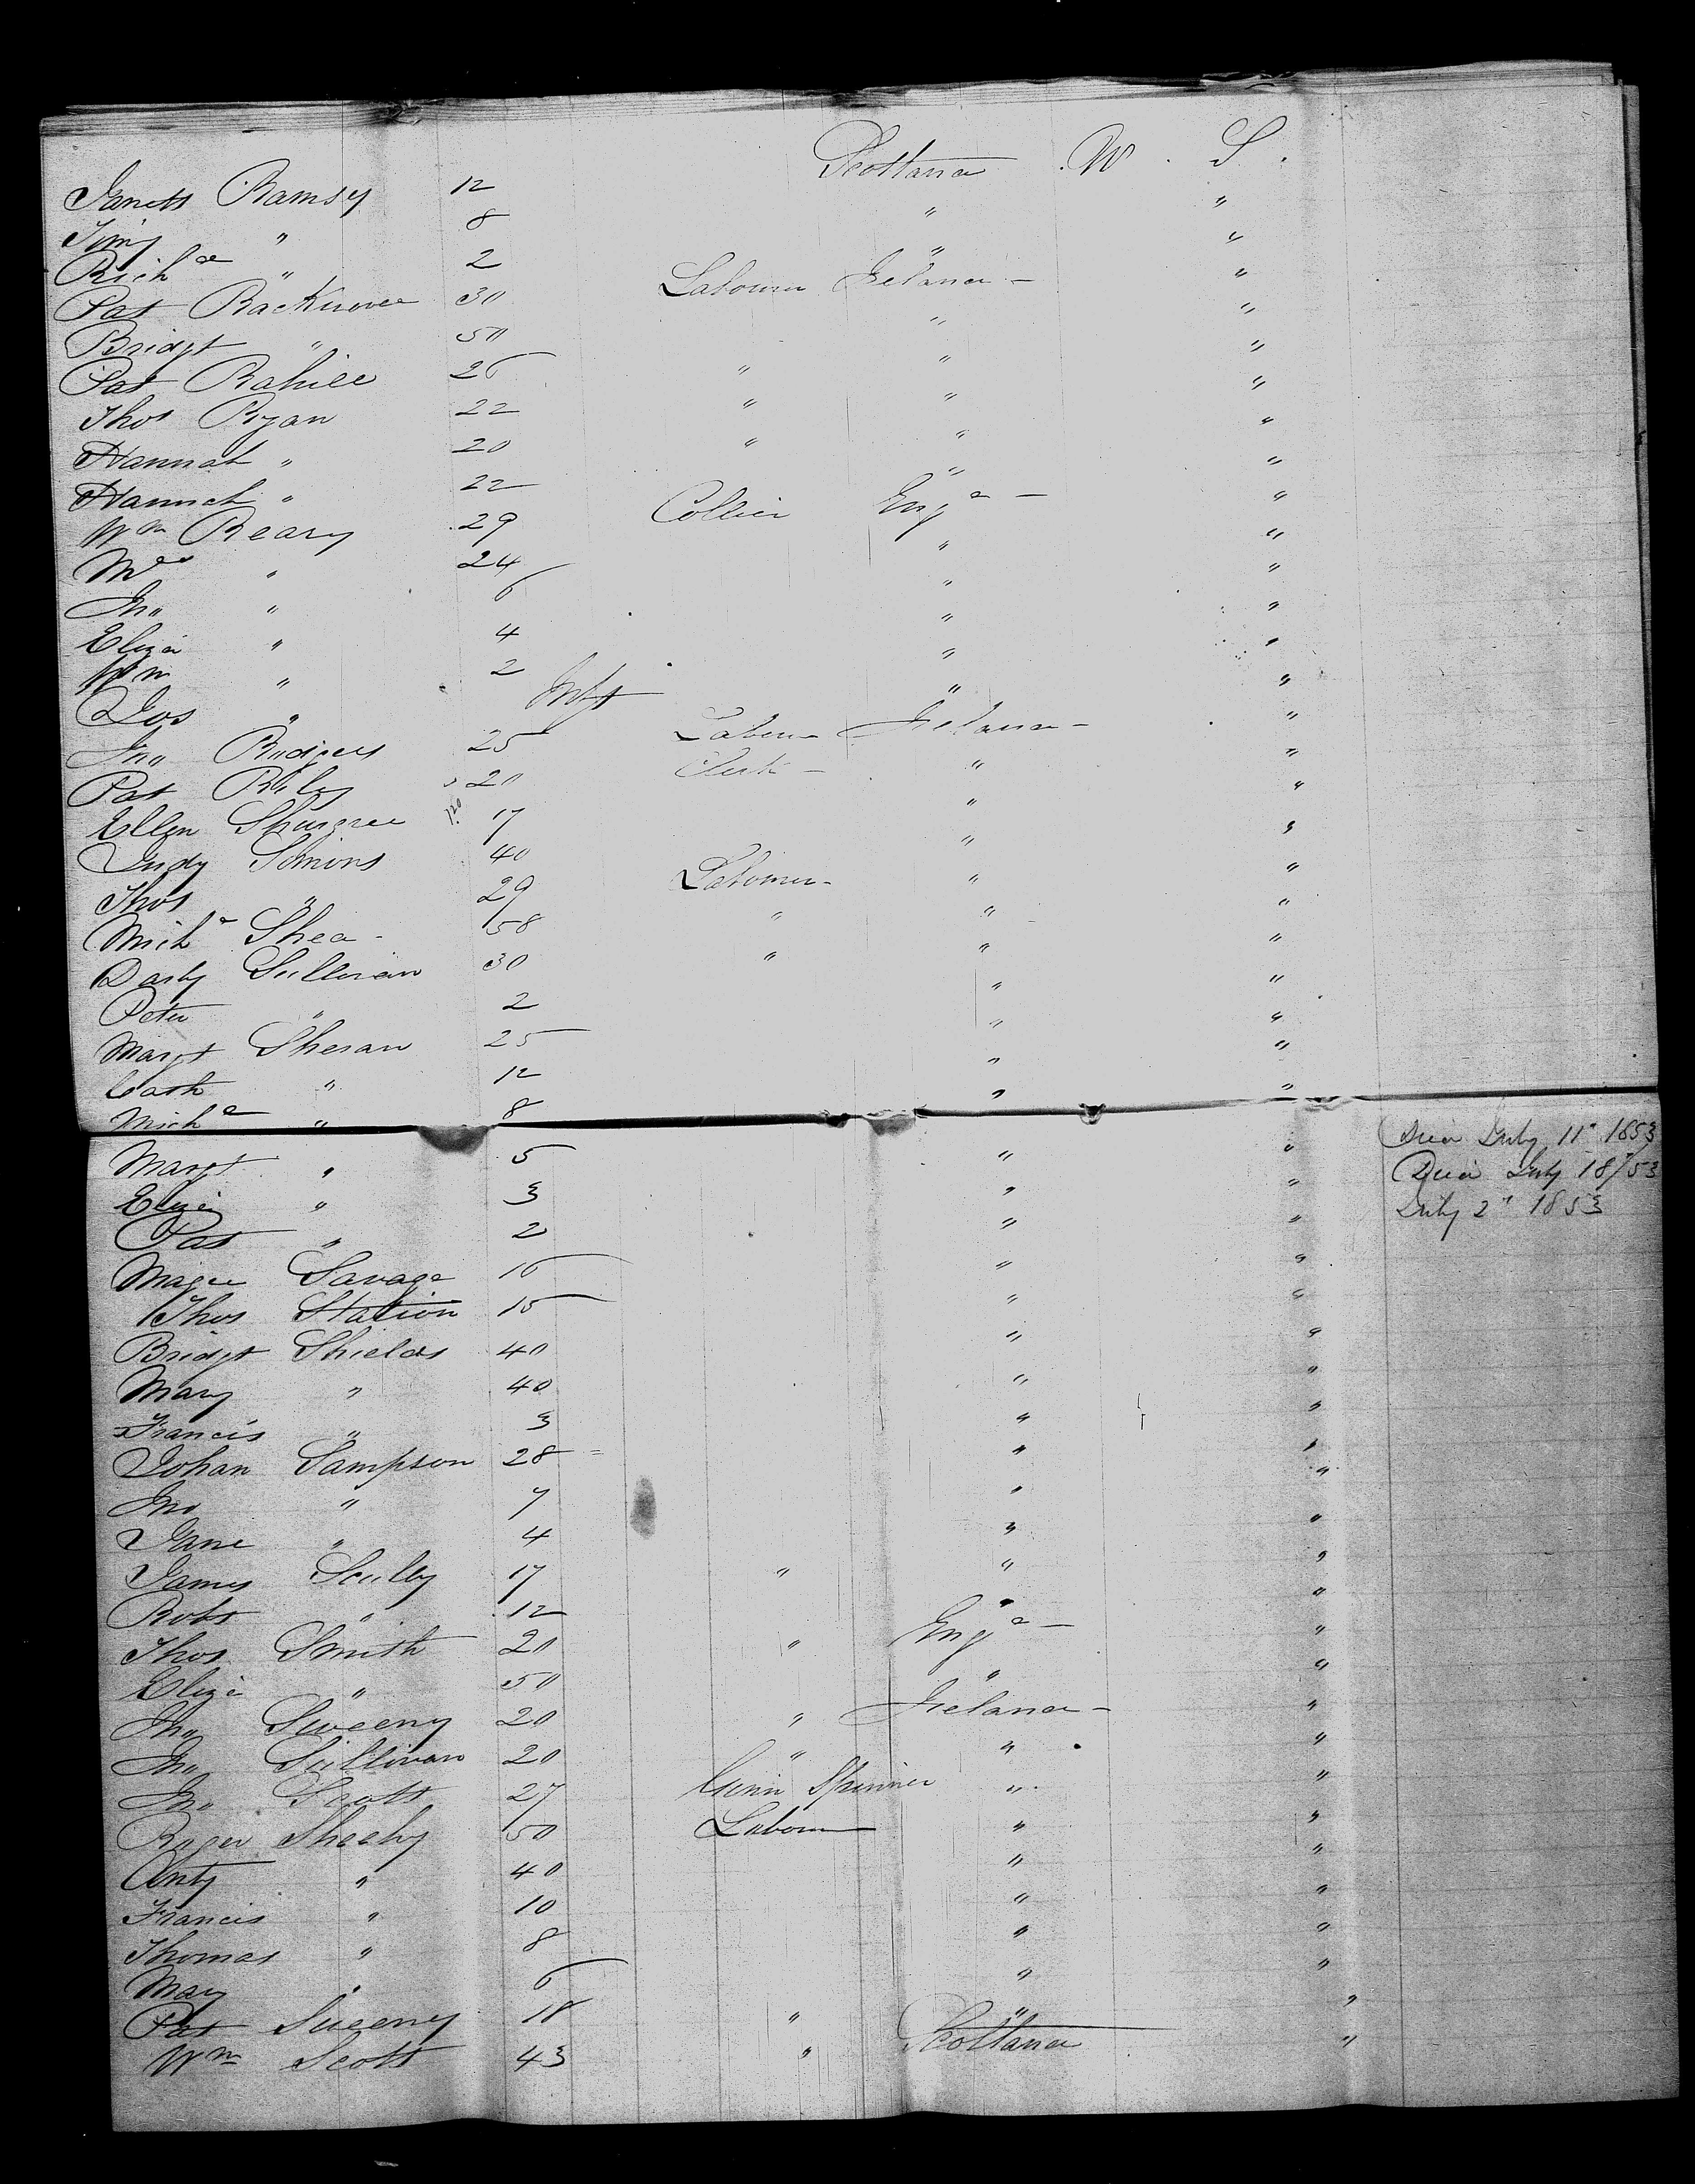 Janett Ramsy 12 Scotland W. S.
Jimy " 8 " "
Richd " 2 " "
Pat 30 Labourer Ireland - "
Bridgt " 50 " "
Pat Rahill 26 " " "
Thos Ryan 22 " " "
Hannah " 20 " " "
Hannah " 22 " "
Wm Reary 29 Collier Engd - "
Mrs " 24 " "
Jno " 6 " "
Eliza " 4 " "
Wm " 2 " "
Jos " Inft " "
Jno Rodgers 25 Labour Ireland - "
Pat Riley 20 Clerk - " "
Ellen 17 " "
Judy Simions 40 " "
Thos " 29 Labourer - " "
Michl Shea - 58 " " "
Darby Sullivan 30 " " "
Peter " 2 " "
Margt Sheran 25 " "
Cath " 12 " "
Michl " 8 " "
Margt " 5 " " Died July 11" 1853
Eliza " 3 " " Died July 18/53
Pat " 2 " " July 2" 1853
Savage 16 " "
Thos Station 15 " "
Bridgt Shields 40 " "
Mary " 40 " "
Francis " 3 " "
Johan Sampson 28 " "
Jno " 7 " "
Jane " 4 " "
James Scully 17 " " "
Robt " 12 " "
Thos Smith 20 " Engd - "
Eliza " 50 " "
Jno Sweeny 20 " Ireland - "
Jno Sullivan 20 " " "
Jno Scott 27 Spinner " "
Roger Sheehy 50 Labour " "
Anty " 40 " "
Francis " 10 " "
Thomas " 8 " "
Mary " 6 " "
Pat Sweeny 18 " " "
Wm Scott 43 " Scotland "